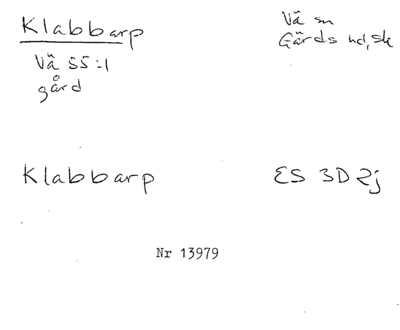 Klabbarp
Vä sn
Gärds hd, Sk
Vä 55:1
gård
Klabbarp
ES 3D 2j
Nr 13979